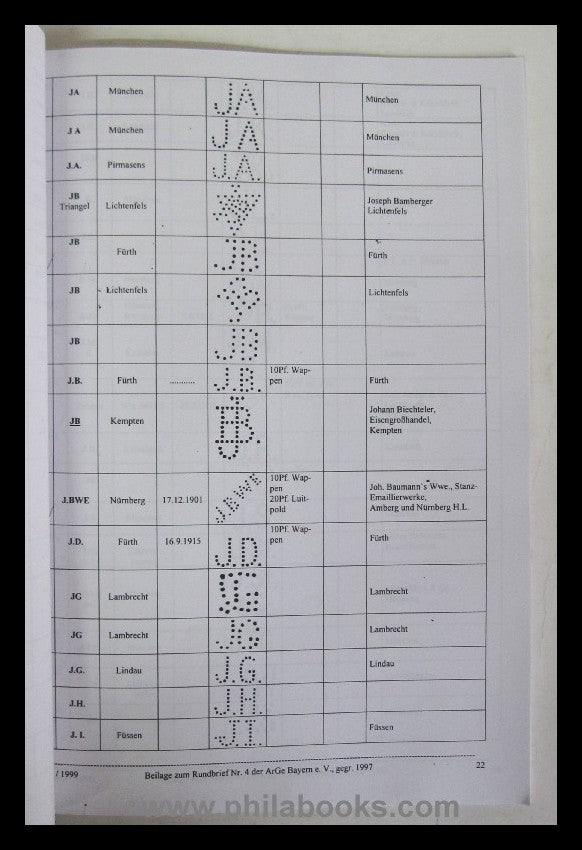 JA München JA München
J A München J A München
J.A. Pirmasens J.A. Pirmasens
JB
Triangel Lichtenfels Joseph Bamberger
Lichtenfels
JB Fürth JB Fürth
JB Lichtenfels Lichtenfels
JB JB
J.B. Fürth ............ J.B. 10Pf. Wap-
pen Fürth
JB Kempten JB. Johann Biechteler,
Eisengroßhandel,
Kempten
J.BWE Nürnberg 17.12.1901 J.BWE 10Pf. Wap-
pen
20Pf. Luit-
pold Joh. Baumann`s Wwe., Stanz-
Emaillierwerke,
Amberg und Nürnberg H.L.
J.D. Fürth 16.9.1915 J.D. 10Pf. Wap-
pen Fürth
JG Lambrecht JG Lambrecht
JG Lambrecht JG Lambrecht
J.G. Lindau J.G. Lindau
J.H. J.H.
J. I. Füssen J.I. Füssen
/ 1999 Beilage zum Rundbrief Nr. 4 der ArGe Bayern e. V., gegr. 1997 22
www.philabooks.com